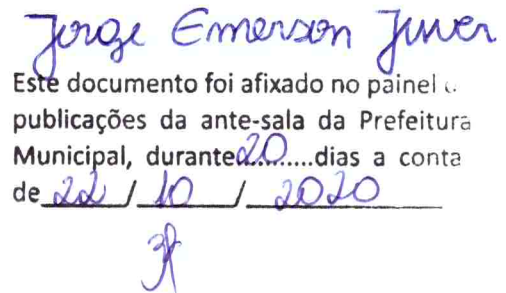 Jorge Emerson
Este documento foi afixado no painel
publicações da ante-sala da Prefeitura
Municipal, durante 20 dias a conta
de 22 / 10 / 2020